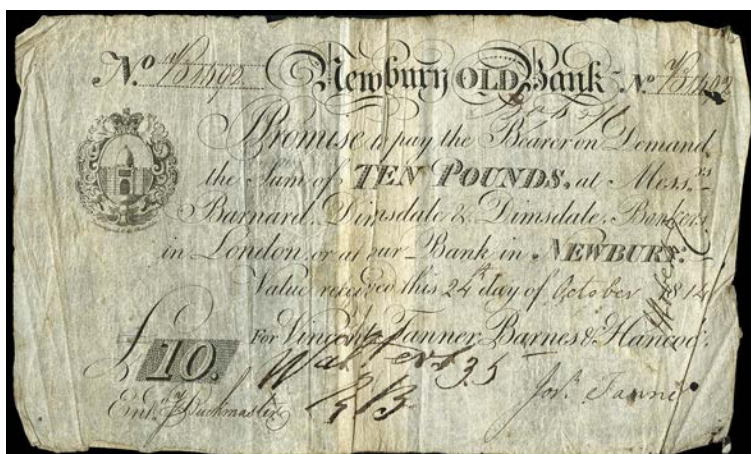 No. 1492 Newbury OLD Bank No.
Promise to pay the Bearer on Demand
the Sum of TEN POUNDS, at Mess.rs
Barnard, Dimsdale & Dimsdale, Bankers
in London, or at our Bank in NEWBURY.
Value received this 24th day of October 1814
For Vincent, Tanner, Barnes & Hancock.
£10.
Walters 35
Ent.d Buckmaster
Jos.h Tanner